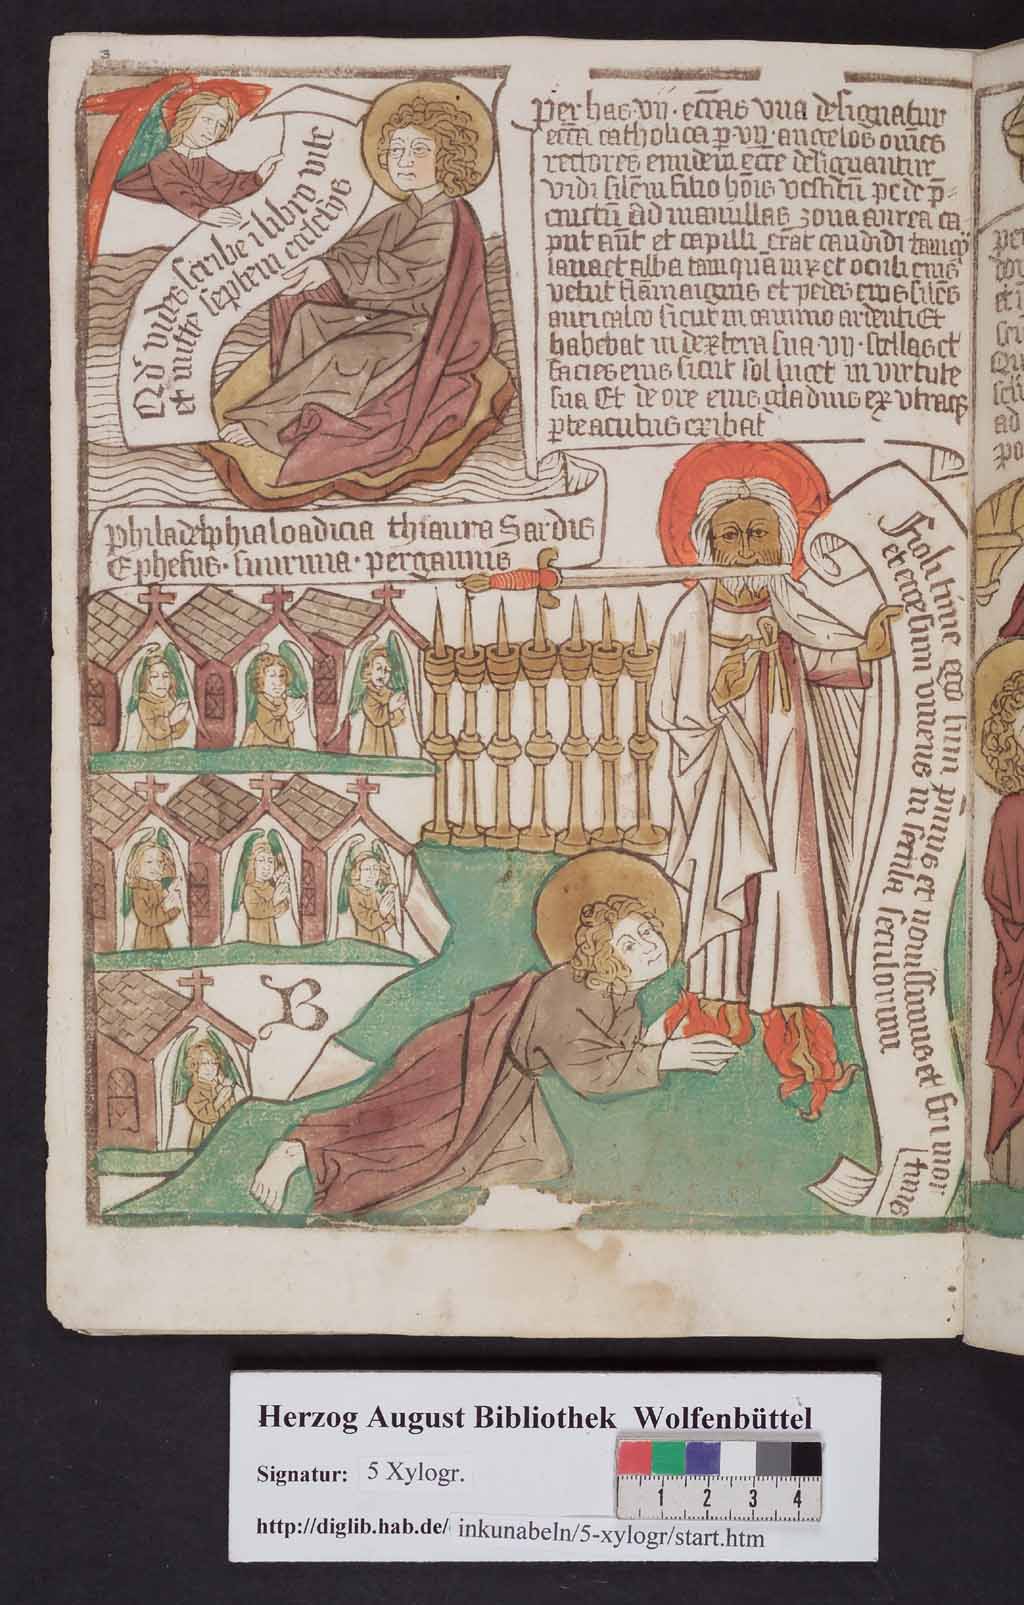 3
Qd vides scribe ī libro vite
et mitte septem ecclesiis
Per has · vij · ecc̄as vna designatur
ecc̄a catholica p vij · angelos om̄es
rectores eiusdem ecc̄e designantur
vidi silēm filio hōīs vestitū pedere p̄=
cinctū ad mamillas zona aurea ca
put aūt et capilli erāt candidi tamq̄
lana et alba tamquā nix et oculi eius
velut flāma ignis et pedes eius silēs
auricalco sicut in camino ardenti Et
habebat in dextera sua vij · stellas et
facies eius sicut sol lucet in virtute
sua Et de ore eius gladius ex vtraqz
pte acutus exibat
philadelphia loadicia thiatira Sardis
Ephesus · smirnia · pergamus
Noli time ego sum p̄imus et nouissimus et fui mor
tuus
et ecce sum viuens in secula seculorum
B
Herzog August Bibliothek Wolfenbüttel
Signatur: 5 Xylogr.
1 2 3 4
http://diglib.hab.de/ inkunabeln/5-xylogr/start.htm